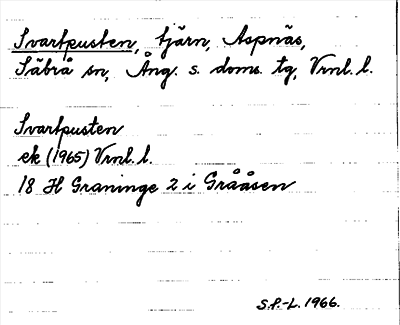 Svartpusten, tjärn, Aspnäs,
Säbrå sn, Ång. s. doms. tg, Vrnl. l.
Svartpusten
ek (1965) Vrnl. l.
18 H Graninge 2 i Grååsen
S.P.-L. 1966.